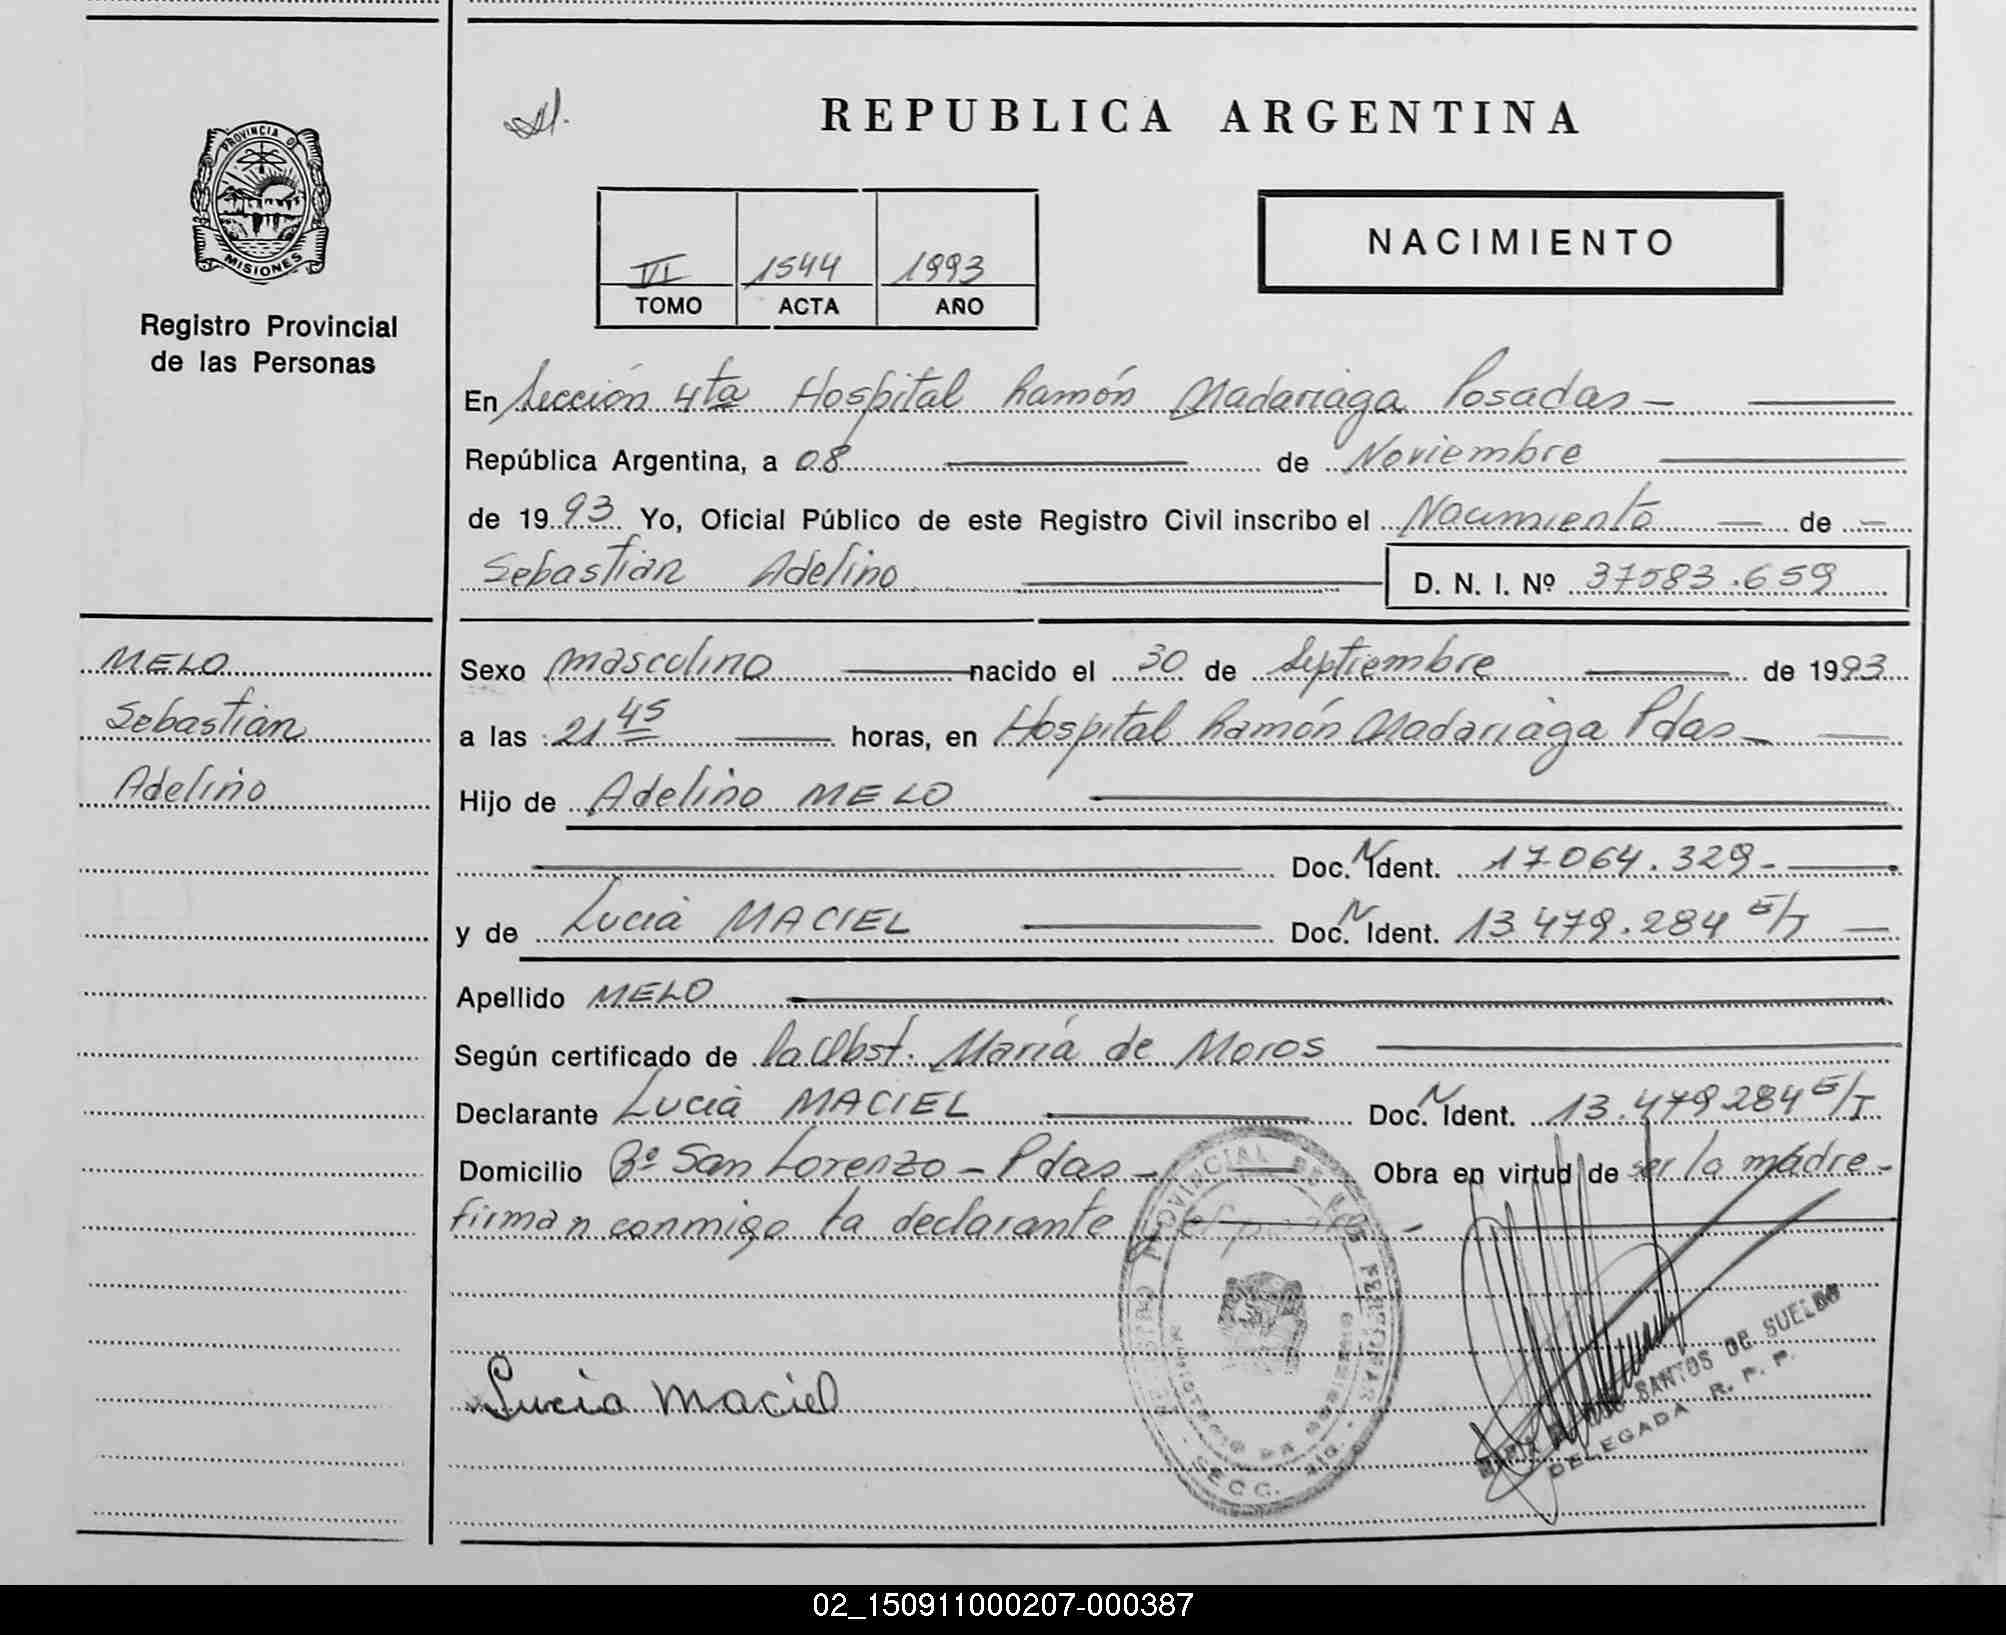 REPUBLICA ARGENTINA
PROVINCIA D
MISIONES
Registro Provincial
de las Personas
VI 1544 1993
TOMO ACTA AÑO
NACIMIENTO
En Sección 4ta Hospital Ramón Madariaga Posadas -
República Argentina, a 08 de Noviembre
de 1993 Yo, Oficial Público de este Registro Civil inscribo el Nacimiento de
Sebastián Adelino D. N. I. Nº 37583.659
MELO
Sebastián
Adelino
Sexo masculino nacido el 30 de Septiembre de 1993
a las 21 45 horas, en Hospital Ramón Madariaga Pdas -
Hijo de Adelino MELO
Doc. N Ident. 17064.329-
y de Lucia MACIEL Doc. N Ident. 13.479.284 E/T
Apellido MELO
Según certificado de la Obst. María de Moros
Declarante Lucia MACIEL Doc. N Ident. 13.479284 E/T
Domicilio Bº San Lorenzo - Pdas - Obra en virtud de ser la madre -
firman conmigo la declarante
REGISTRO PROVINCIAL DE LAS PERSONAS
MINISTERIO DE GOBIERNO
SECC.
Lucia Maciel
SANTOS DE SUELDO
DELEGADA R. P. P.
02_150911000207-000387